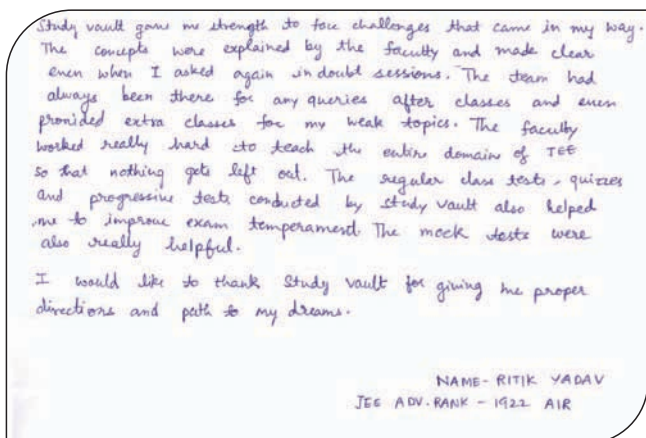 Study vault gave me strength to face challenges that came in my way.
The concepts were explained by the faculty and made clear
even when I asked again in doubt sessions. The team had
always been there for any queries after classes and even
provided extra classes for my weak topics. The faculty
worked really hard to teach the entire domain of JEE
so that nothing gets left out. The regular class tests, quizzes
and progressive tests conducted by study vault also helped
me to improve exam temperament. The mock tests were
also really helpful.
I would like to thank Study vault for giving me proper
directions and path to my dreams.
NAME- RITIK YADAV
JEE ADV. RANK - 1922 AIR